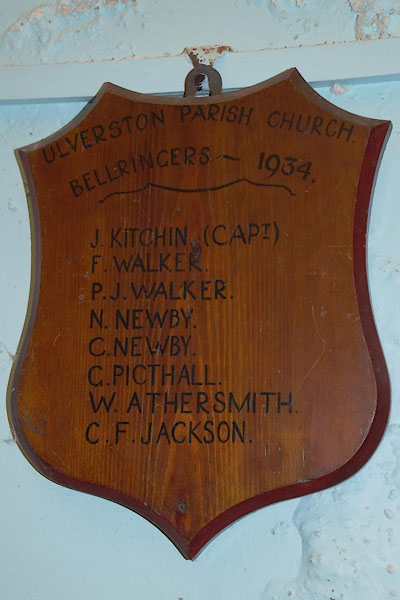 ULVERSTON PARISH CHURCH.
BELLRINGERS ~ 1934.
J. KITCHIN, (CAPT)
F. WALKER.
P. J. WALKER.
N. NEWBY.
C. NEWBY.
G. PICTHALL.
W. ATHERSMITH.
C. F. JACKSON.